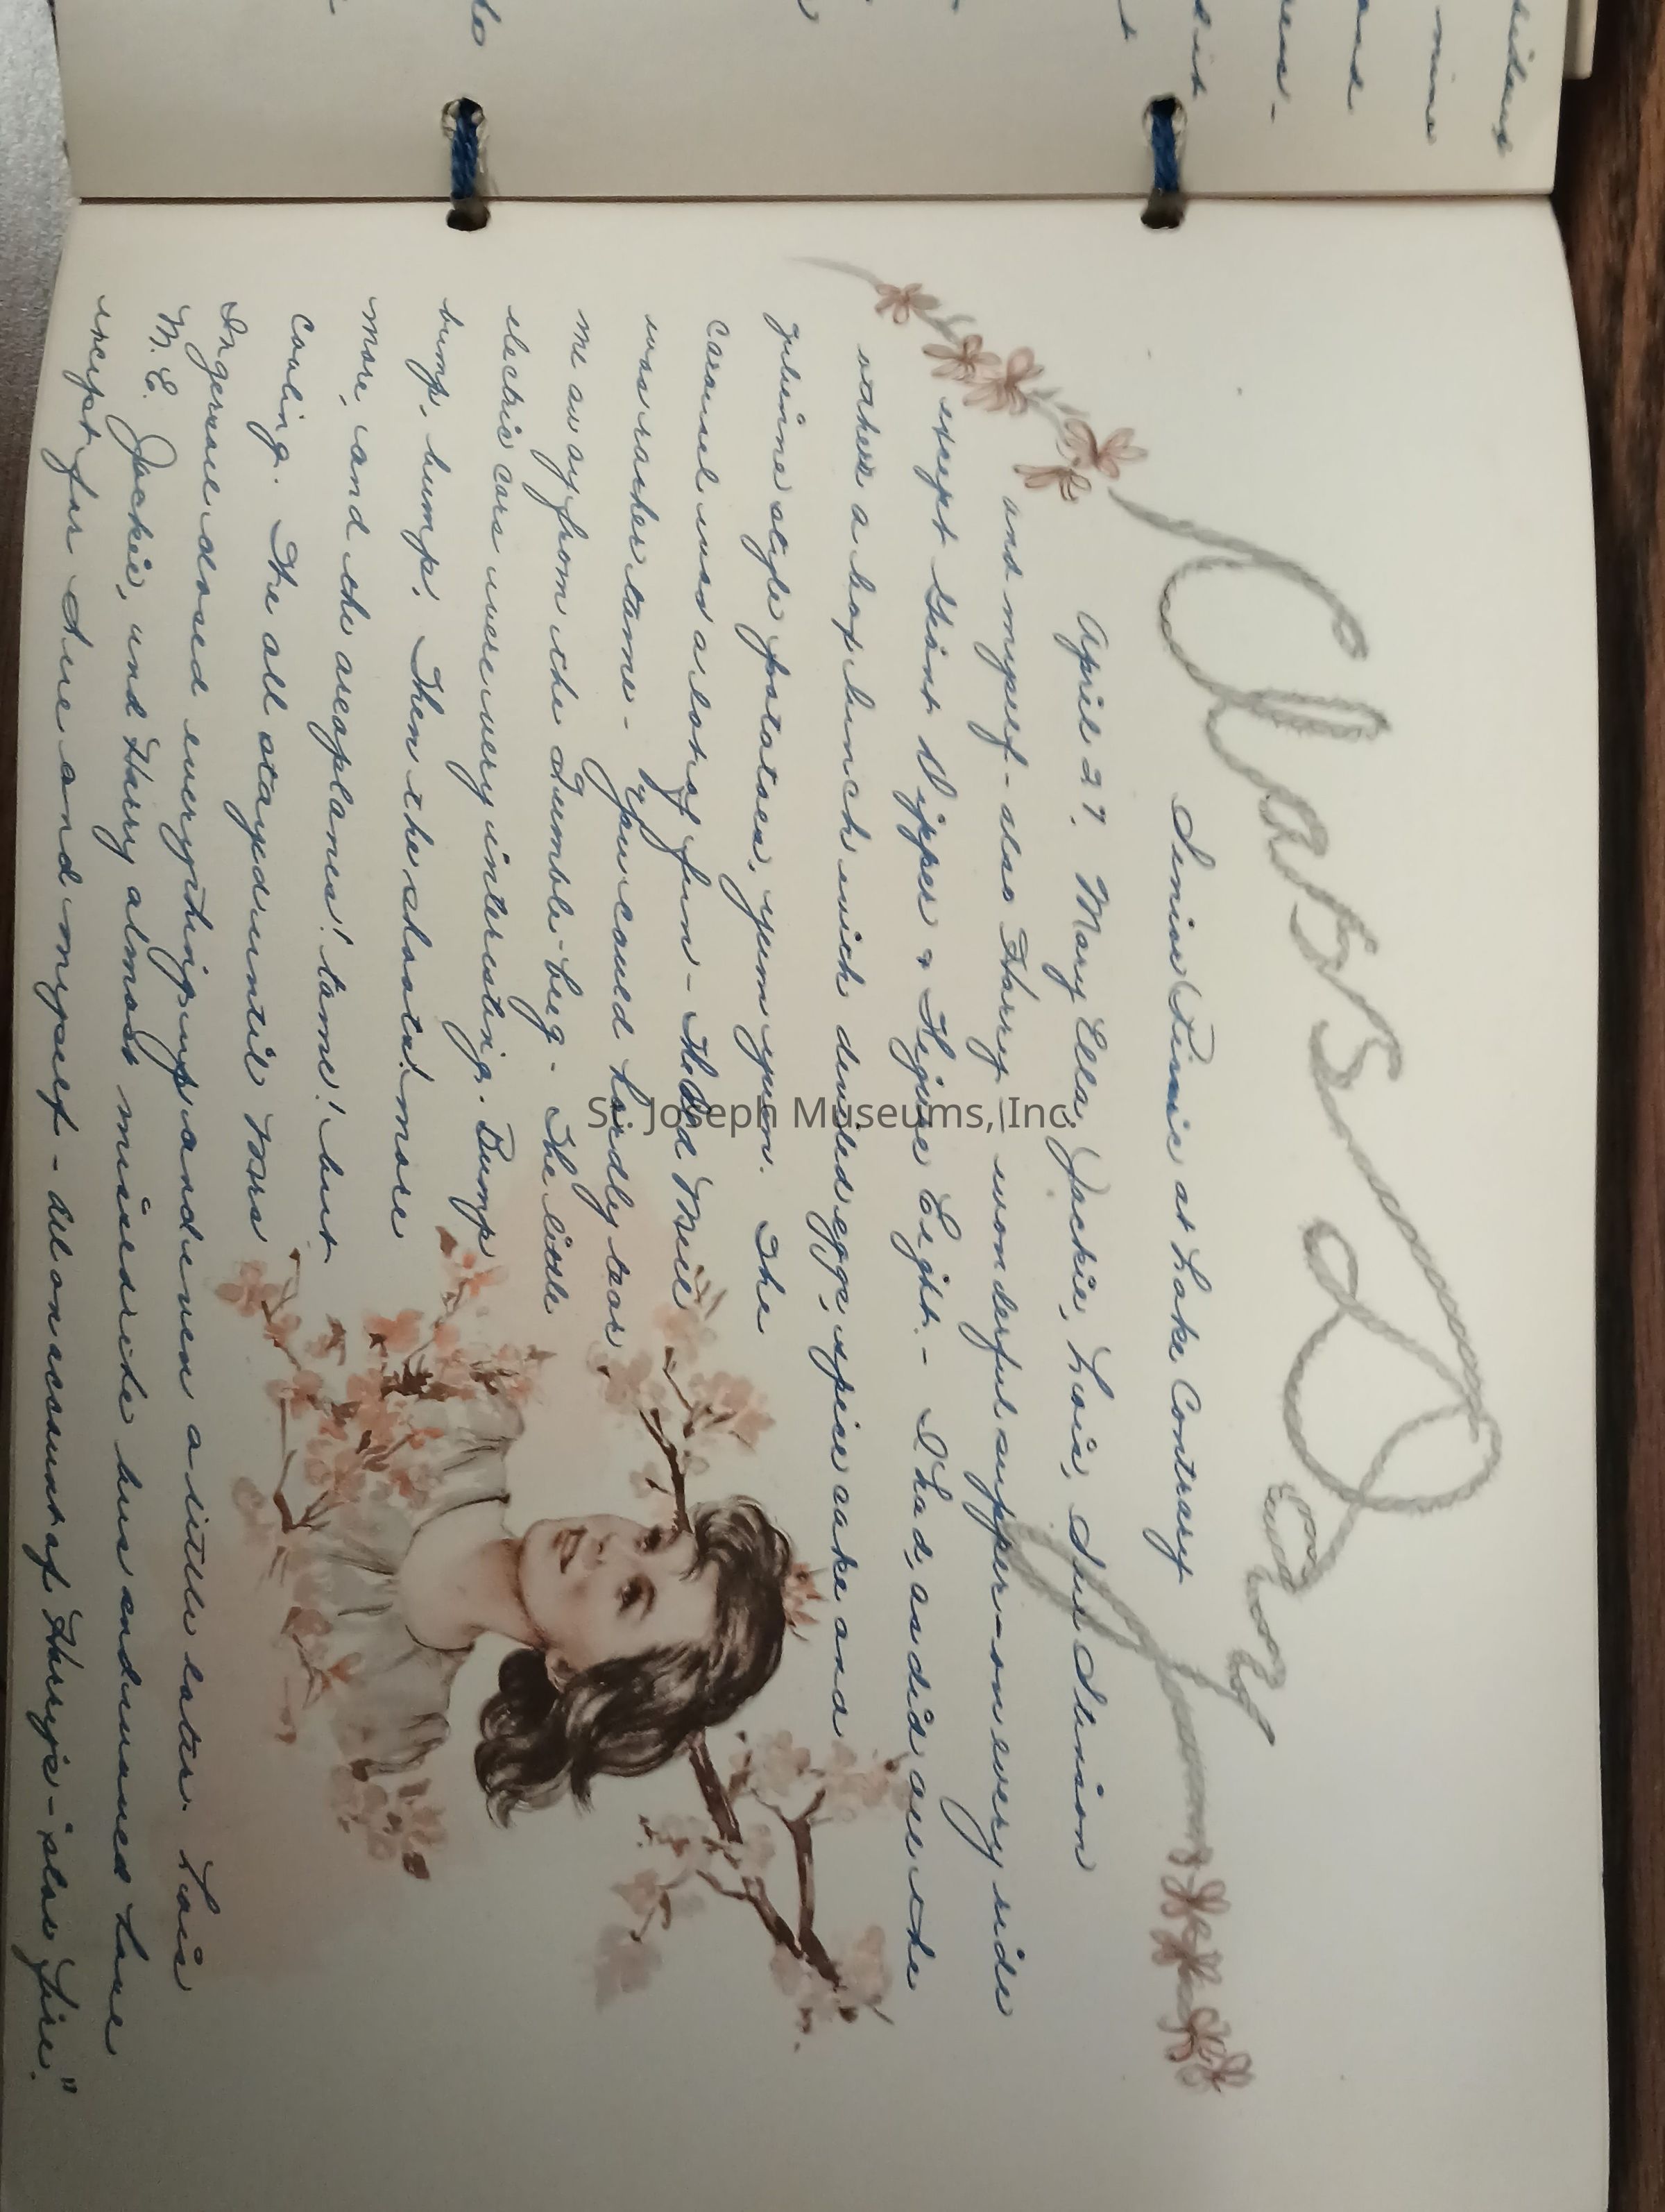 Class Day
Senior Picnic at Lake Contrary
April 27. Mary Ella, Jackie, Lois, Sue Stinson
and myself - also Harry wonderful supper - on every side
except Giant Dipper & Figure Eight. - I had, as did all the
others a box lunch with deviled eggs, spice cake and
julienne style potatoes, yum yum. The
carousel was a lot of fun - The Old Mill
was rather tame - you could hardly tear
me away from the Tumble-bug. The little
electric cars were very interesting. Bump
bump, bump! Then the shoots! more
more, and the aeroplanes! tame! but
cooling. We all stayed until Mrs
Ingersoll dosed everything up and even a little later. Lois
M. E. Jackie, and Harry almost missed the bus and used have
except for Sue and myself - all on account of Harry's - "slow fire."
St. Joseph Museums, Inc.